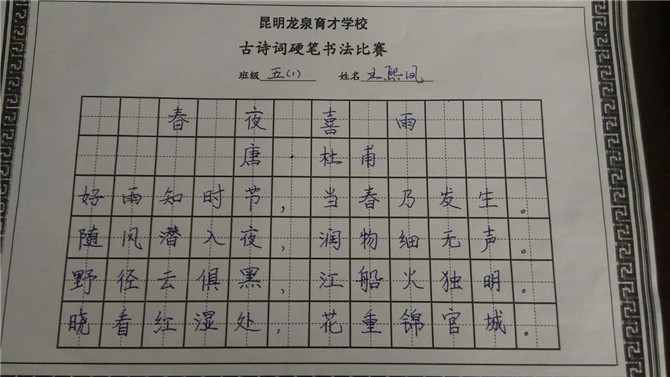 昆明龙泉育才学校
古诗词硬笔书法比赛
班级 五(1) 姓名 王熙凤
春夜喜雨
唐·杜甫
好雨知时节，当春乃发生。
随风潜入夜，润物细无声。
野径云俱黑，江船火独明。
晓看红湿处，花重锦官城。